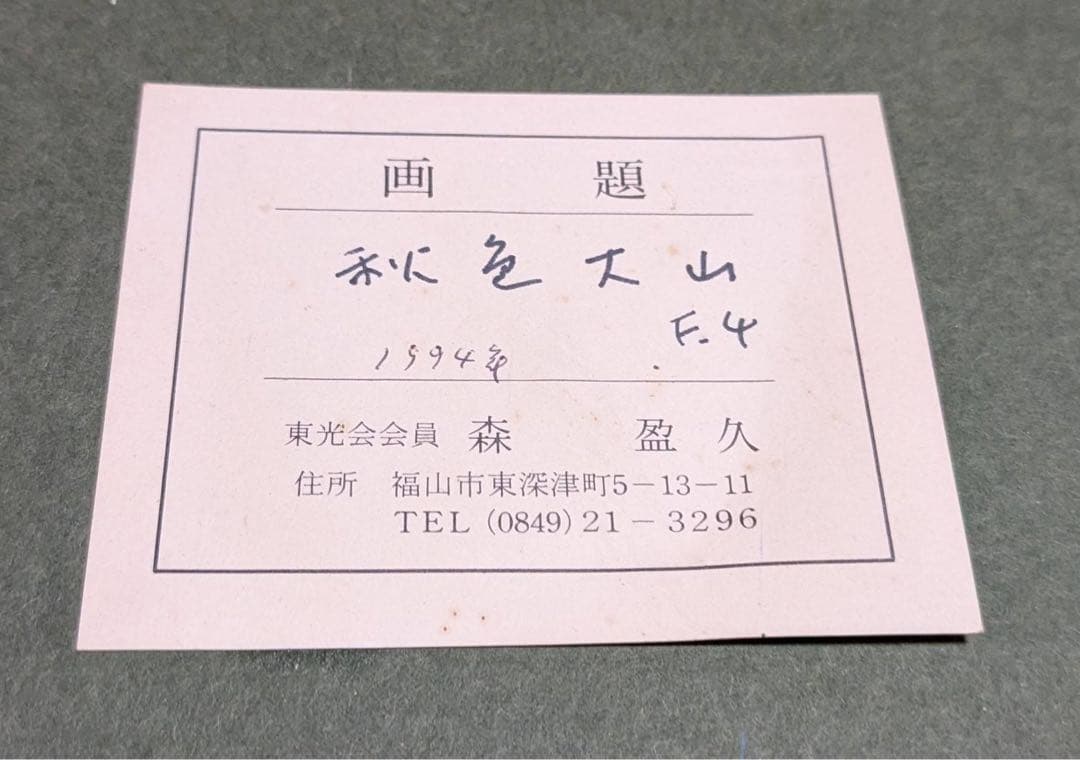 画 題
秋色大山
F.4
1994年
東光会会員 森 盈久
住所 福山市東深津町5-13-11
TEL (0849) 21-3296